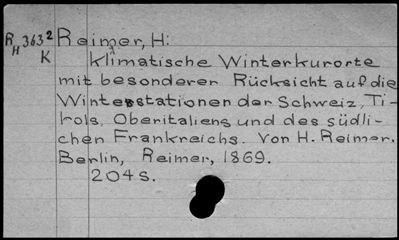 R H 363² Reimer, H:
K Klimatische Winterkurorte
mit besonderer Rücksicht auf die
Winterstationen der Schweiz, Ti-
rols, Oberitaliens und des südli-
chen Frankreichs. Von H. Reimer.
Berlin, Reimer, 1869.
204 S.